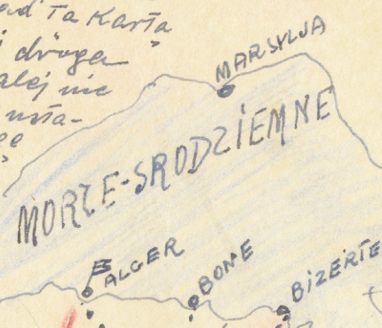 ad ta Karta"
i droga
alej nie
usta-
MARSYLJA
MORZE-SRODZIEMNE
ALGER
BONE
BIZERTE